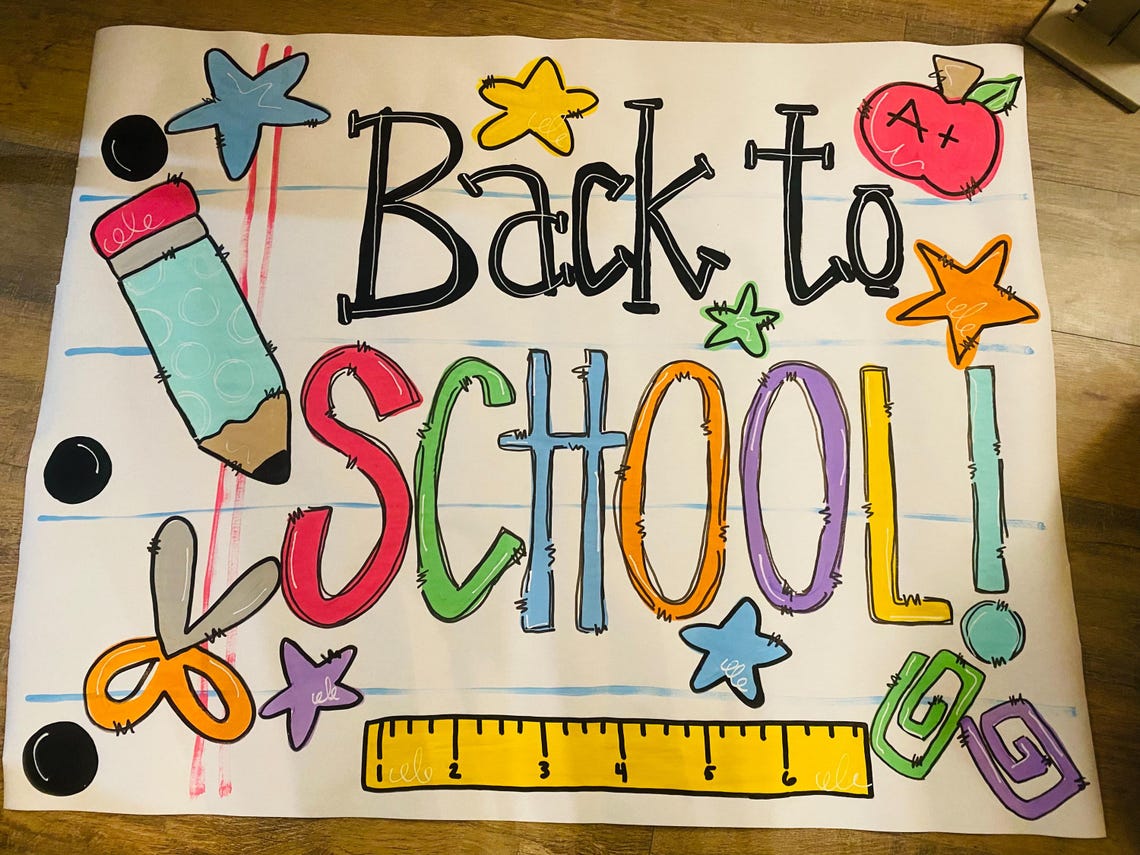 Back to
A+
SCHOOL!
1 2 3 4 5 6